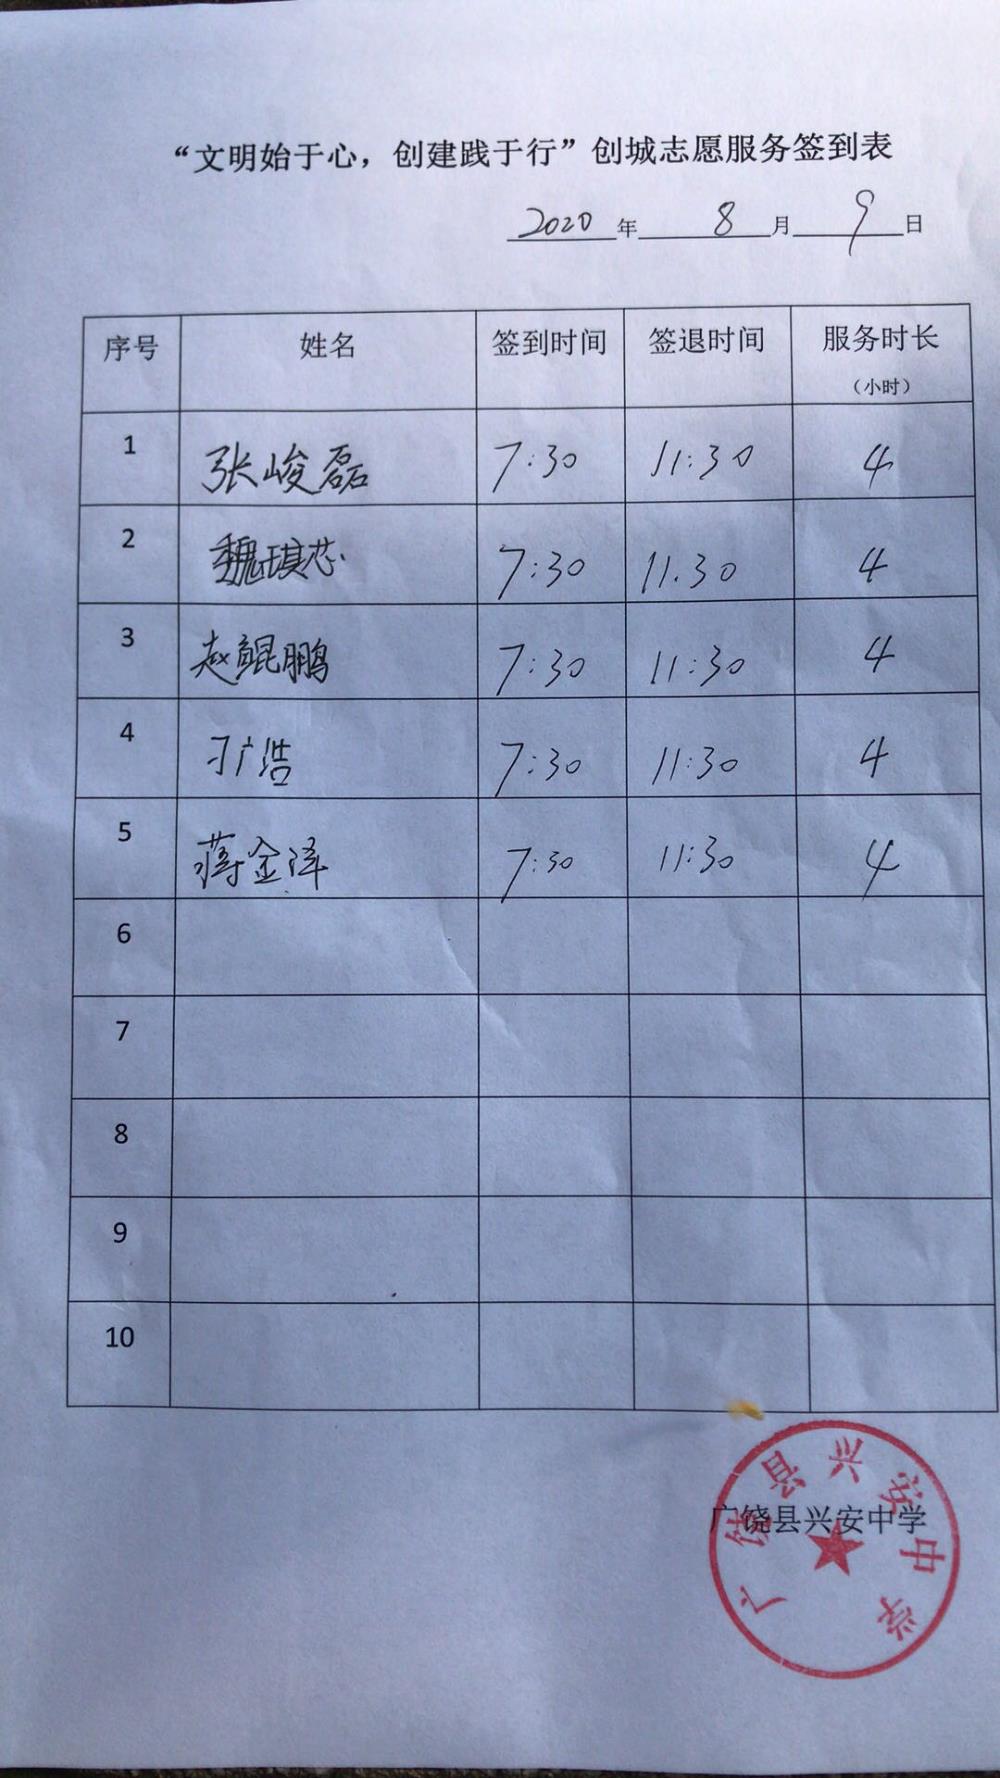 “文明始于心，创建践于行”创城志愿服务签到表
2020年 8月 9日
序号 姓名 签到时间 签退时间 服务时长
（小时）
1 张峻磊 7:30 11:30 4
2 魏琪芯 7:30 11.30 4
3 赵鲲鹏 7:30 11:30 4
4 刁广浩 7:30 11:30 4
5 蒋金泽 7:30 11:30 4
6
7
8
9
10
广饶县兴安中学
广饶县兴安中学